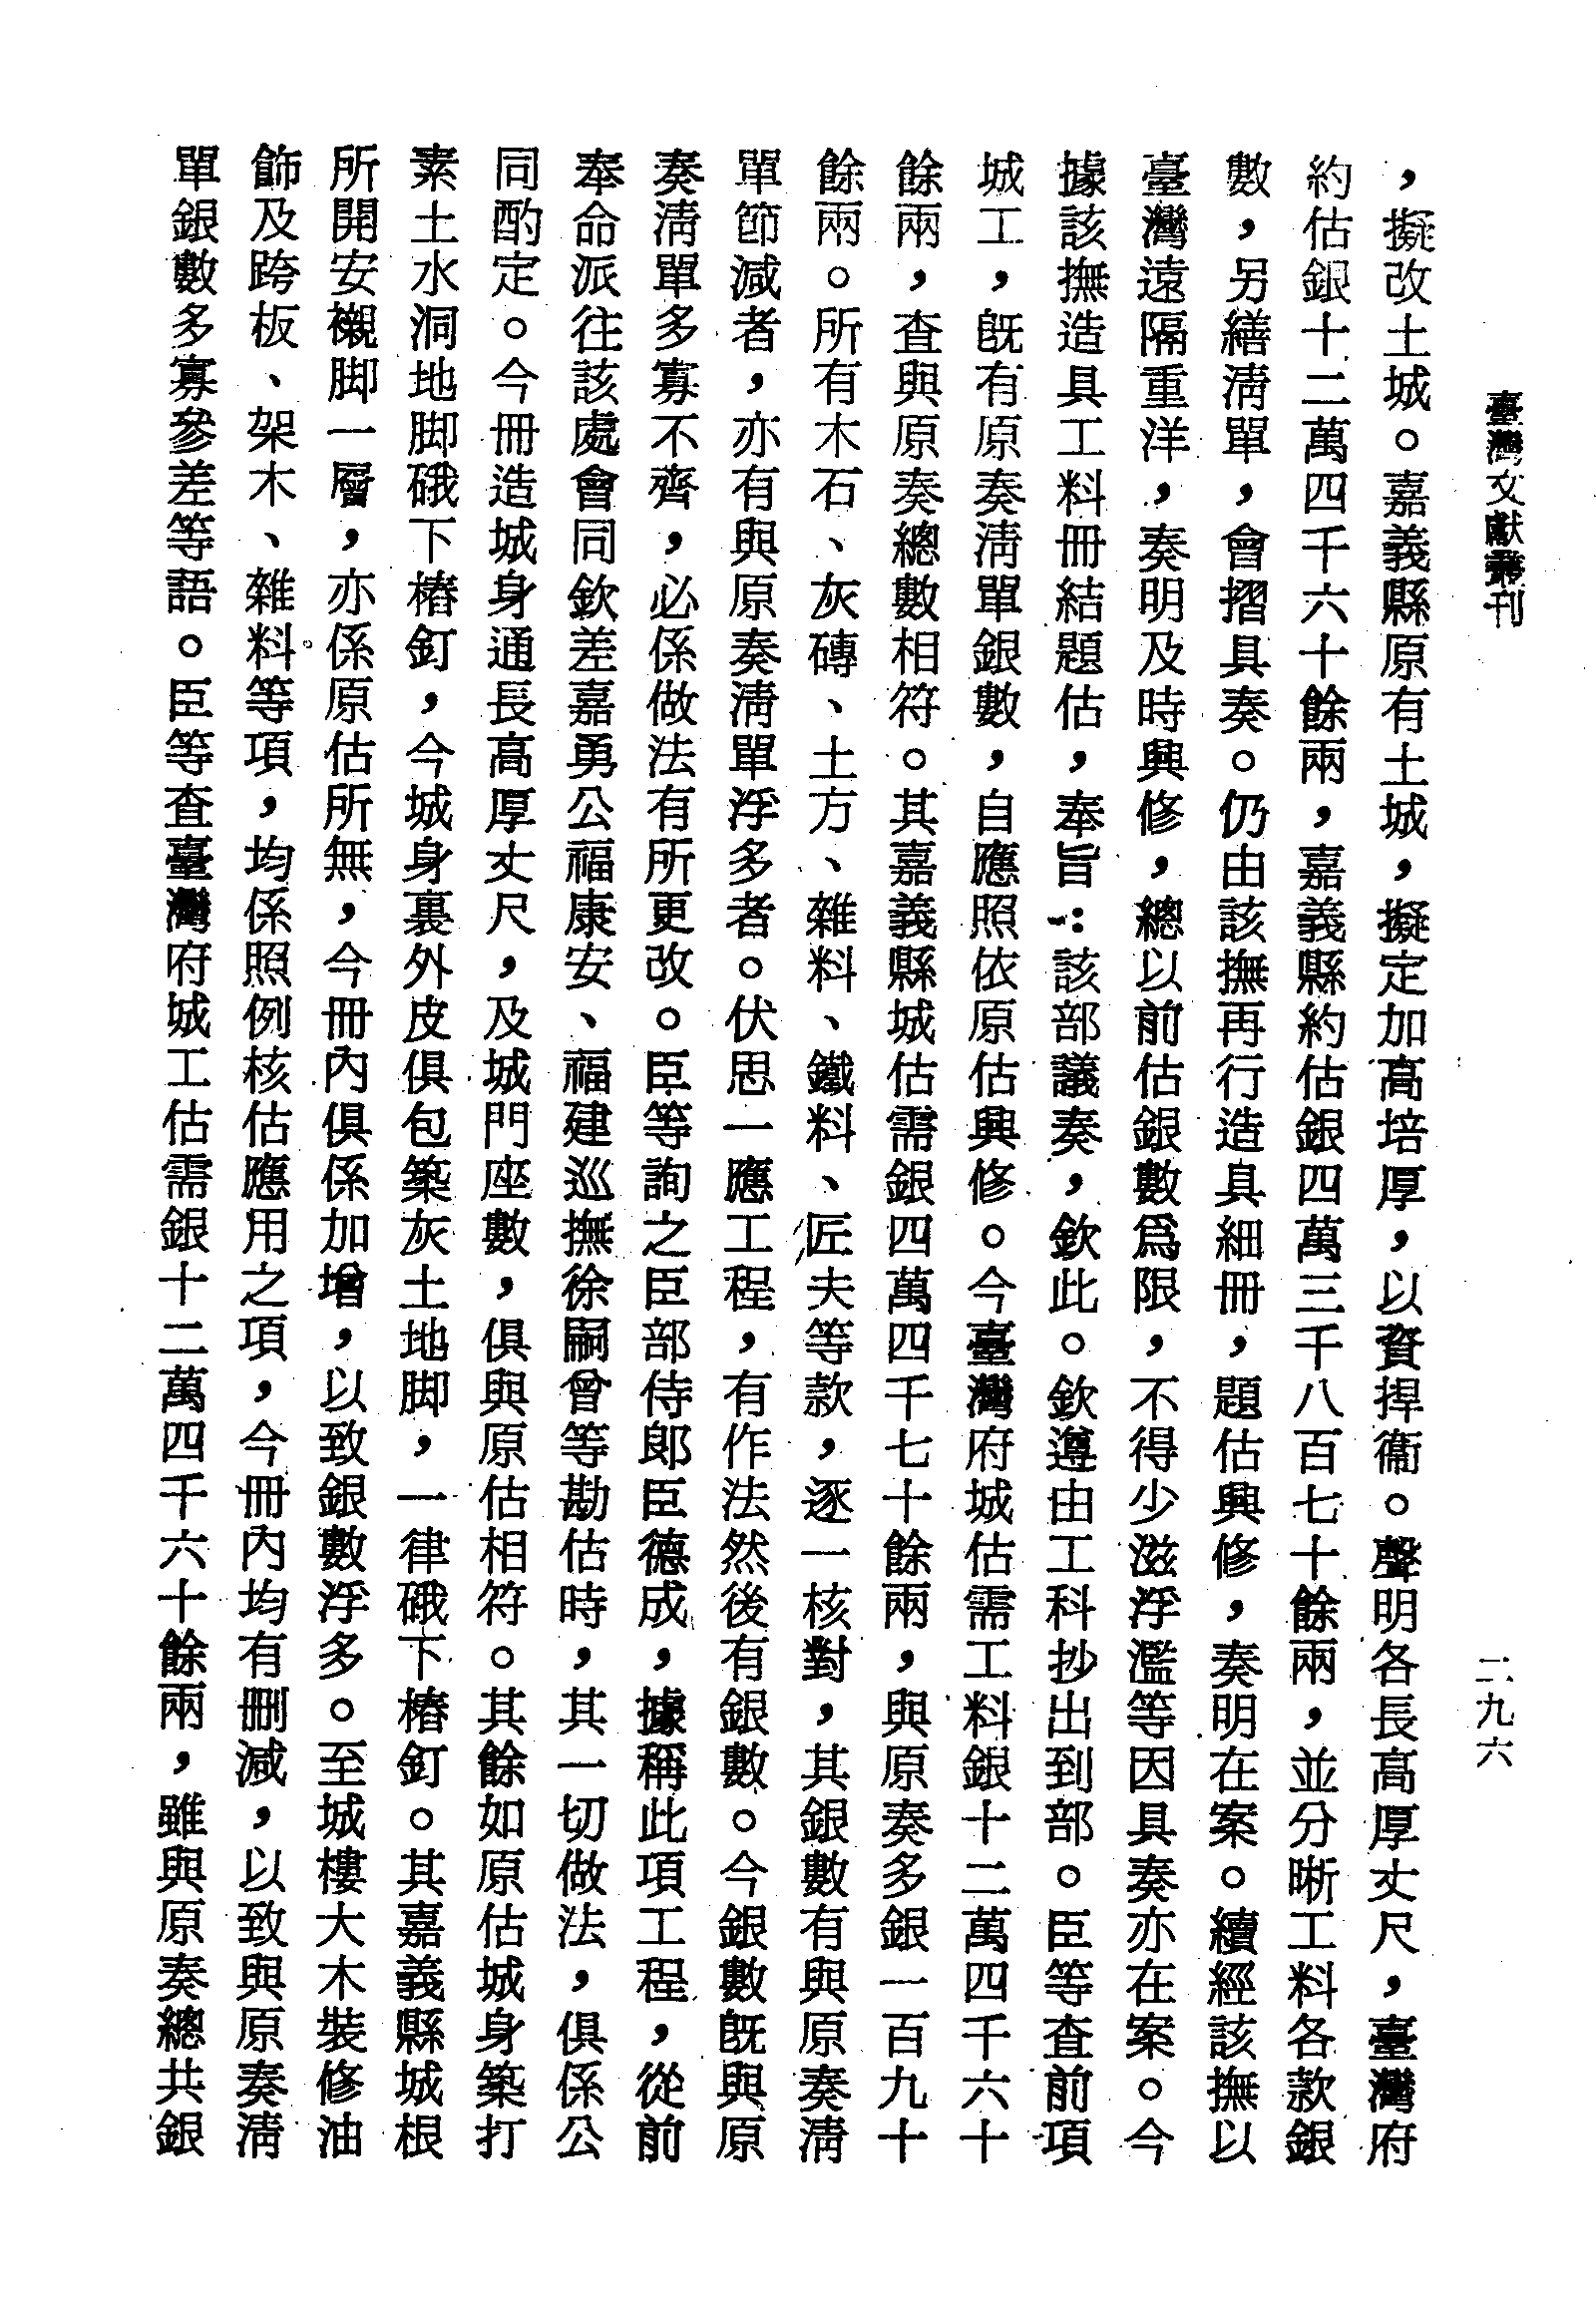 臺灣文獻叢刊
二九六
，擬改土城。嘉義縣原有土城，擬定加高培厚，以資捍衞。聲明各長高厚丈尺，臺灣府
約估銀十二萬四千六十餘兩，嘉義縣約估銀四萬三千八百七十餘兩，並分晰工料各款銀
數，另繕淸單，會摺具奏。仍由該撫再行造具細冊，題估興修，奏明在案。續經該撫以
臺灣遠隔重洋，奏明及時興修，總以前估銀數爲限，不得少滋浮濫等因具奏亦在案。今
據該撫造具工料冊結題估，奉旨：該部議奏，欽此。欽遵由工科抄出到部。臣等査前項
城工，旣有原奏淸單銀數，自應照依原估興修。今臺灣府城估需工料銀十二萬四千六十
餘兩，査與原奏總數相符。其嘉義縣城估需銀四萬四千七十餘兩，與原奏多銀一百九十
餘兩。所有木石、灰磚、土方、雜料、鐵料、匠夫等款，逐一核對，其銀數有與原奏淸
單節減者，亦有與原奏淸單浮多者。伏思一應工程，有作法然後有銀數。今銀數旣與原
奏淸單多寡不齊，必係做法有所更改。臣等詢之臣部侍郞臣德成，據稱此項工程，從前
奉命派往該處會同欽差嘉勇公福康安、福建巡撫徐嗣曾等勘估時，其一切做法，俱係公
同酌定。今冊造城身通長高厚丈尺，及城門座數，俱與原估相符。其餘如原估城身築打
素土水洞地脚硪下樁釘，今城身裏外皮俱包築灰土地脚，一律硪下樁釘。其嘉義縣城根
所開安襯脚一層，亦係原估所無，今冊內俱係加增，以致銀數浮多。至城樓大木裝修油
飾及跨板、架木、雜料等項，均係照例核估應用之項，今冊內均有刪減，以致與原奏淸
單銀數多寡參差等語。臣等査臺灣府城工估需銀十二萬四千六十餘兩，雖與原奏總共銀